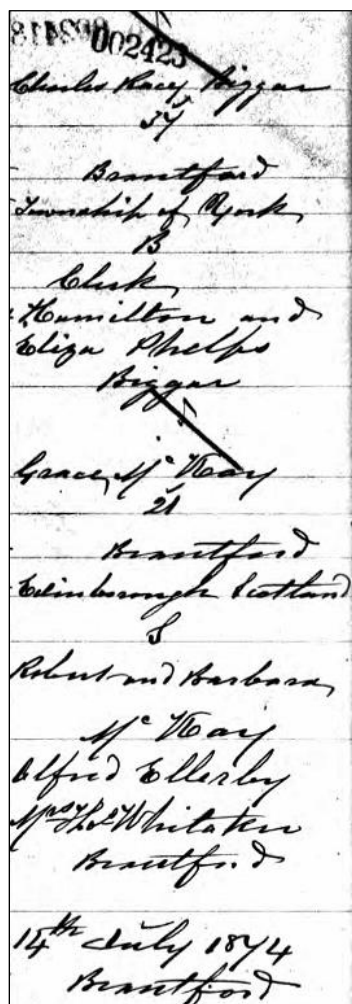 002423
Charles Racey Biggar
37
Brantford
Township of York
B
Clerk
Hamilton and
Eliza Phelps
Biggar
Grace Mc Kay
21
Brantford
Edinborough Scotland
S
Robert and Barbara
Mc Kay
Alfred Ellerby
Mrs Whitaker
Brantford
14th July 1874
Brantford